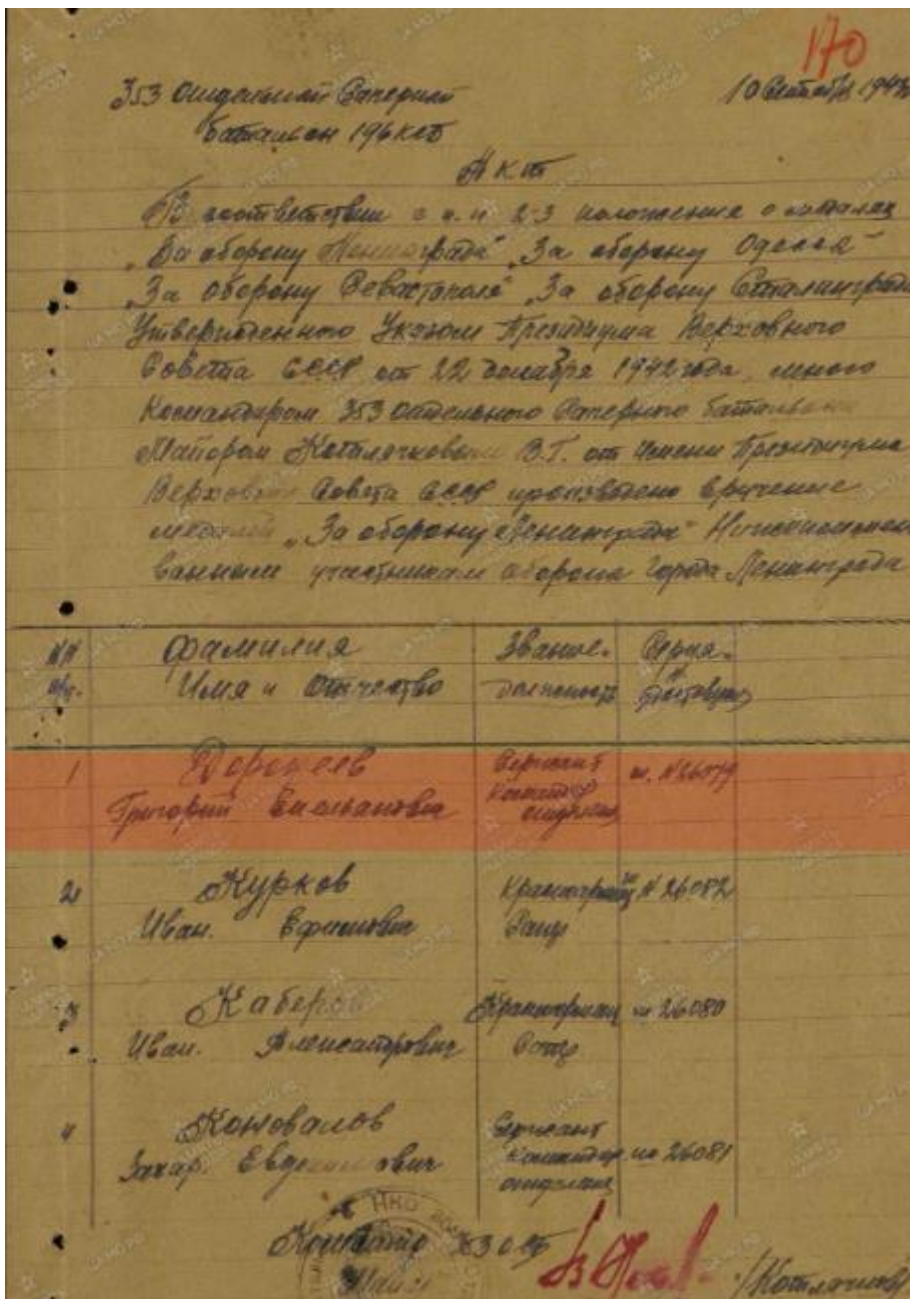 170
353 Отдельный Саперный
10 Сентября 194
батальон 196 КСД
Акт
В соответствии с п. п 2-3 положения о медалях
"За оборону Ленинграда" "За оборону Одессы"
"За оборону Севастополя" "За оборону Сталинграда
Утвержденного Указом Президиума Верховного
Совета СССР от 22 декабря 1942 года, мною
Командиром 353 отдельного Саперного батальона
Майором В.Г. от имени Президиума
Верховного Совета СССР произведено вручение
медалей "За оборону Ленинграда"
участникам обороны города Ленинграда
NN
п/п.
Фамилия
Имя и Отчество
Звание.
должность
Серия.
и
1
Григорий Емельянович
Сержант
Командир
отделения
2
Курков
Иван. Ефимович
Красноармеец
N 26082
3
Каберов
Иван. Александрович
Красноармеец
26080
4
Коновалов
Захар.
Сержант
Командир
отделения
26081
НКО
353 ОСБ
Майор